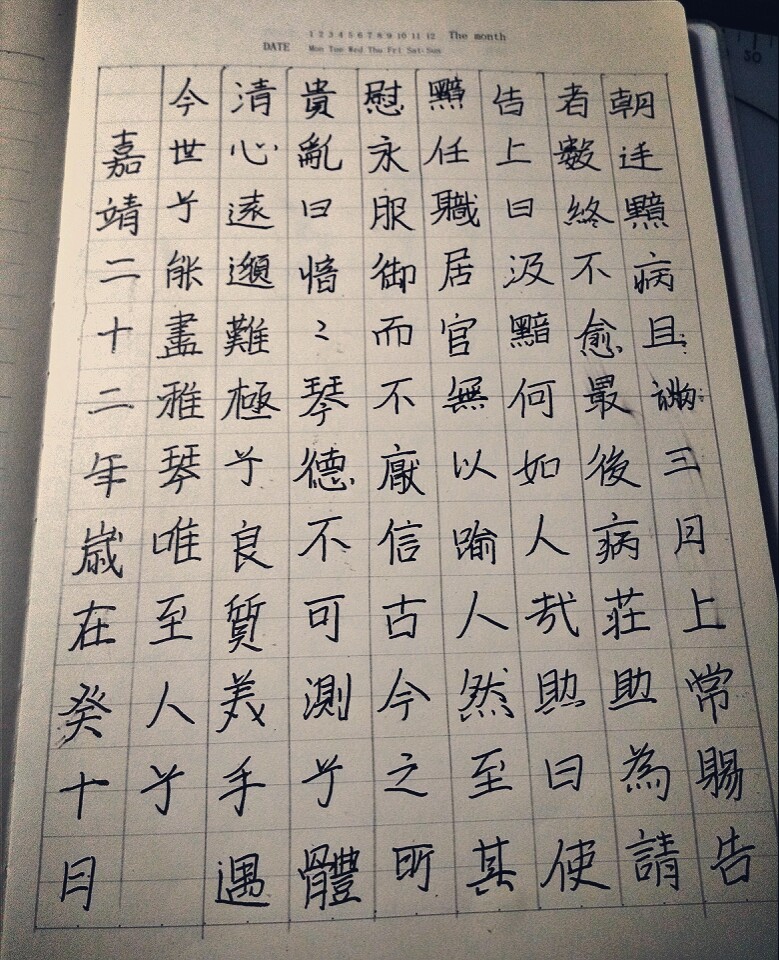 1 2 3 4 5 6 7 8 9 10 11 12 The month
DATE Mon Tue Wed Thu Fri Sat Sun
朝廷黯病且滿三月上常賜告
者數終不愈最後病荘助為請
告上曰汲黯何如人哉助曰使
黯任職居官無以踰人然至其
慰永服御而不厭信古今之所
貴亂曰愔〻琴德不可測兮體
清心遠邈難極兮良質美手遇
今世兮能盡雅琴唯至人兮
嘉靖二十二年歲在癸十月
20